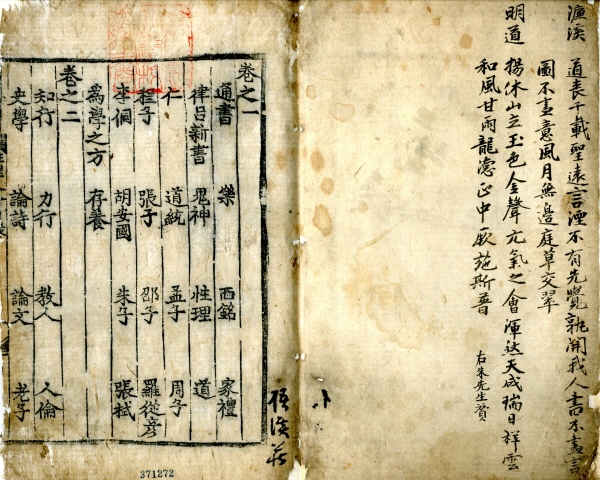 濂溪 道喪千載聖遠言湮不有先覺孰開我人書不盡言
圖不盡意風月無邊庭草交翠
明道 揚休山立玉色金聲元氣之會渾然天成瑞日祥雲
和風甘雨龍德正中厥施斯普
右朱先生贊
梧溪莊
卷之一
通書 樂 西銘 家禮
律呂新書 鬼神 性理 道
仁 道統 孟子 周子
程子 張子 邵子 羅從彥
李侗 胡安國 朱子 張栻
為學之方 存養
卷之二
知行 力行 教人 人倫
史學 論詩 論文 老子
371272